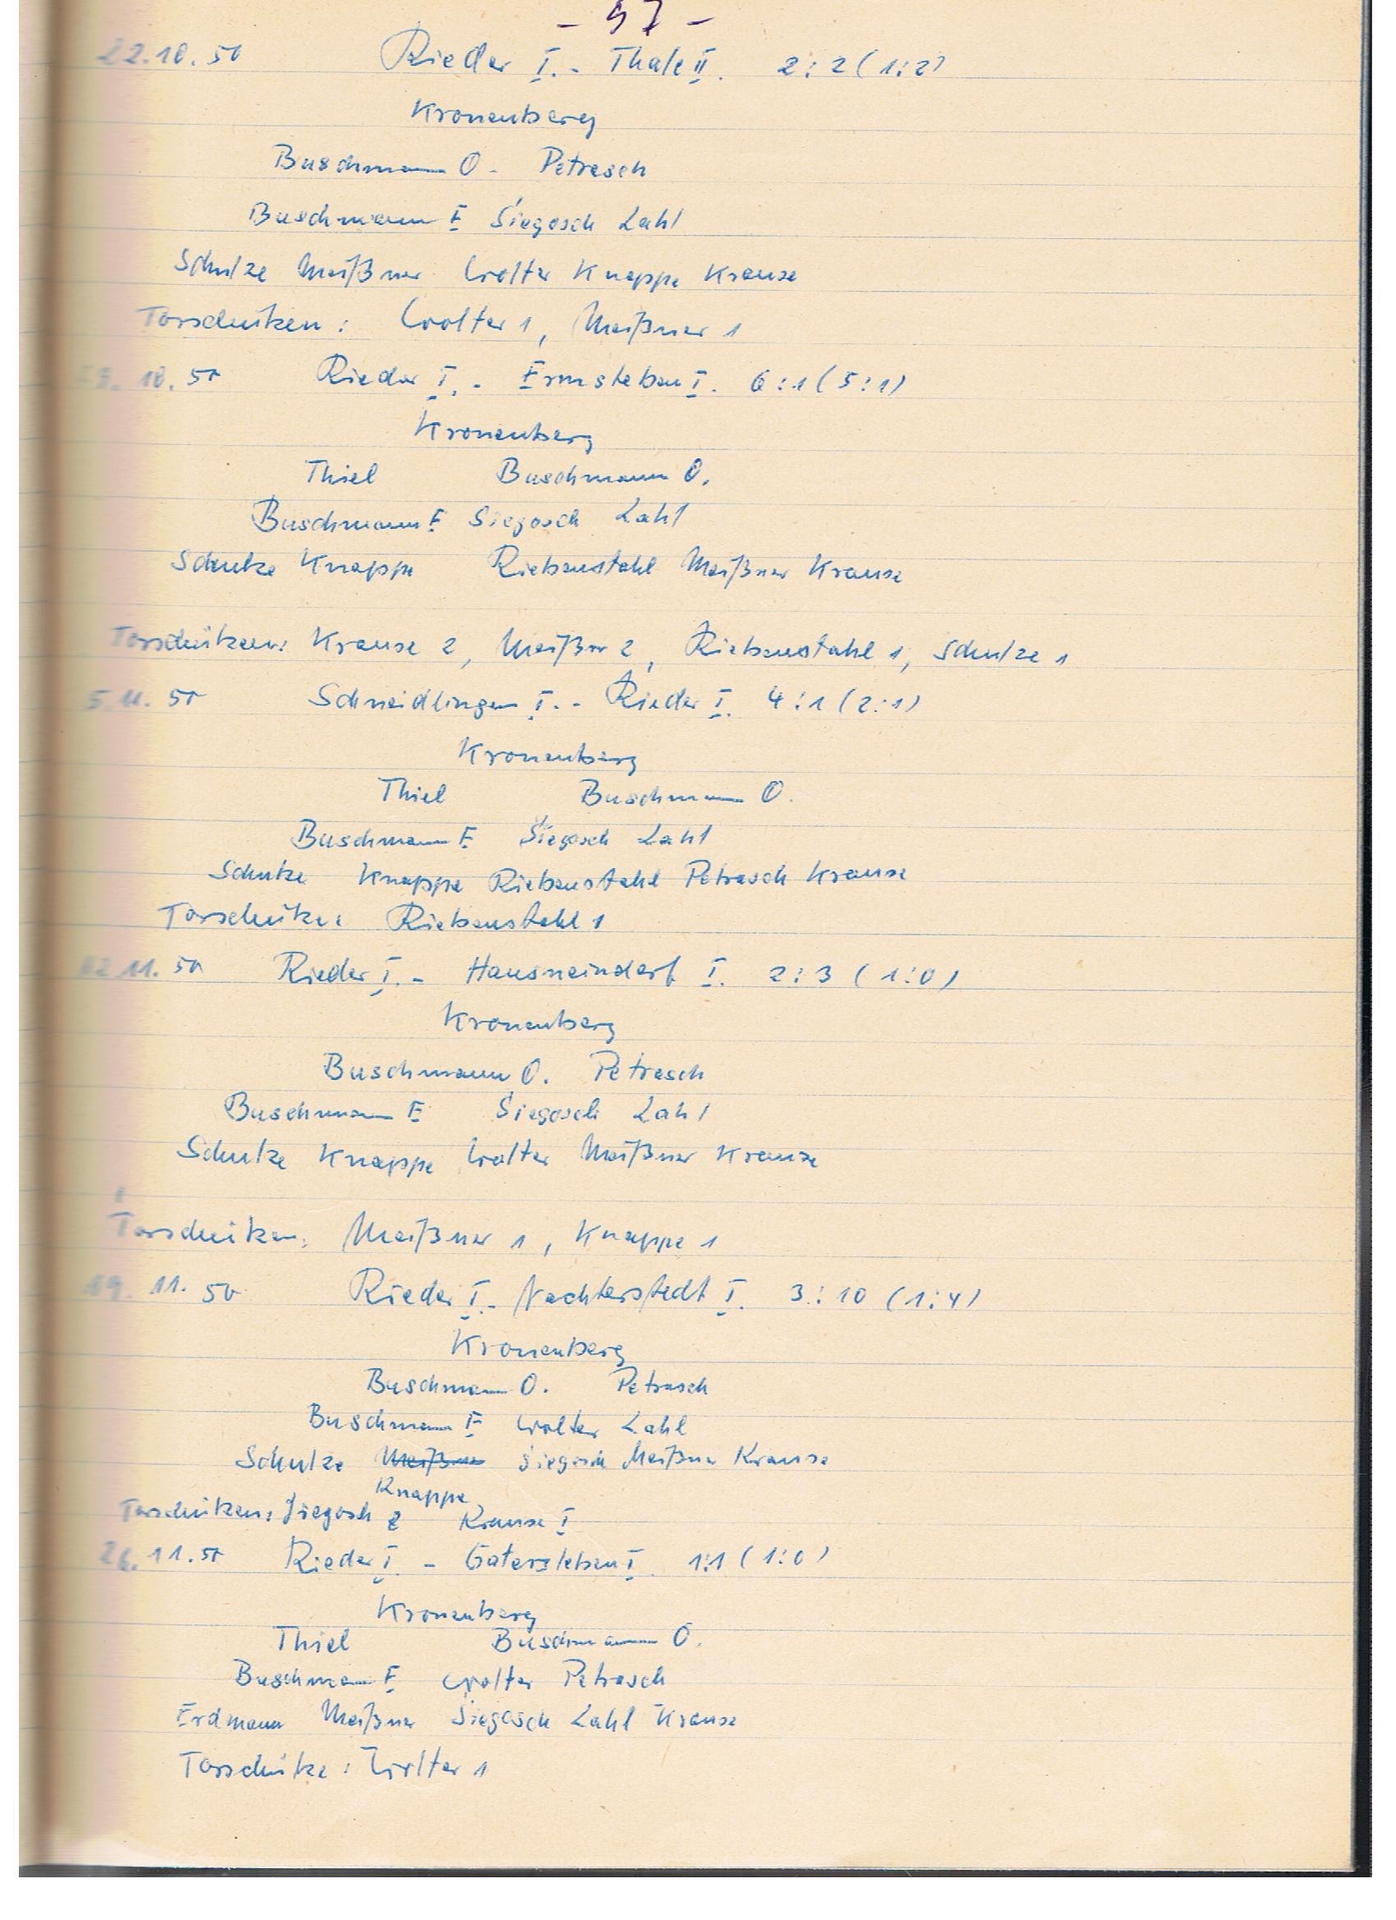 - 57 -
22.10.50 Rieder I. - Thale II. 2:2 (1:2)
Kronenberg
Buschmann O. Petrasch
Buschmann E Siegosch Lahl
Schulze Meißner Wolter Knappe Krause
Torschützen: Wolter 1, Meißner 1
10.50 Rieder I. - Ermsleben I. 6:1 (5:1)
Kronenberg
Thiel Buschmann O.
Buschmann E Siegosch Lahl
Schulze Knappe Riebenstahl Meißner Krause
Torschützen: Krause 2, Meißner 2, Riebenstahl 1, Schulze 1
5.11.50 Schneidlingen I. - Rieder I. 4:1 (2:1)
Kronenberg
Thiel Buschmann O.
Buschmann E Siegosch Lahl
Schulze Knappe Riebenstahl Petrasch Krause
Torschütze: Riebenstahl 1
12.11.50 Rieder I. - Hausneindorf I. 2:3 (1:0)
Kronenberg
Buschmann O. Petrasch
Buschmann E Siegosch Lahl
Schulze Knappe Wolter Meißner Krause
Torschützen: Meißner 1, Knappe 1
19.11.50 Rieder I. - Nachterstedt I. 3:10 (1:4)
Kronenberg
Buschmann O. Petrasch
Buschmann E Wolter Lahl
Schulze Meißner Siegosch Meißner Krause
Knappe
Torschützen: Siegosch 2 Krause I
26.11.50 Rieder I. - Gatersleben I. 1:1 (1:0)
Kronenberg
Thiel Buschmann O.
Buschmann E Wolter Petrasch
Erdmann Meißner Siegosch Lahl Krause
Torschütze: Wolter 1